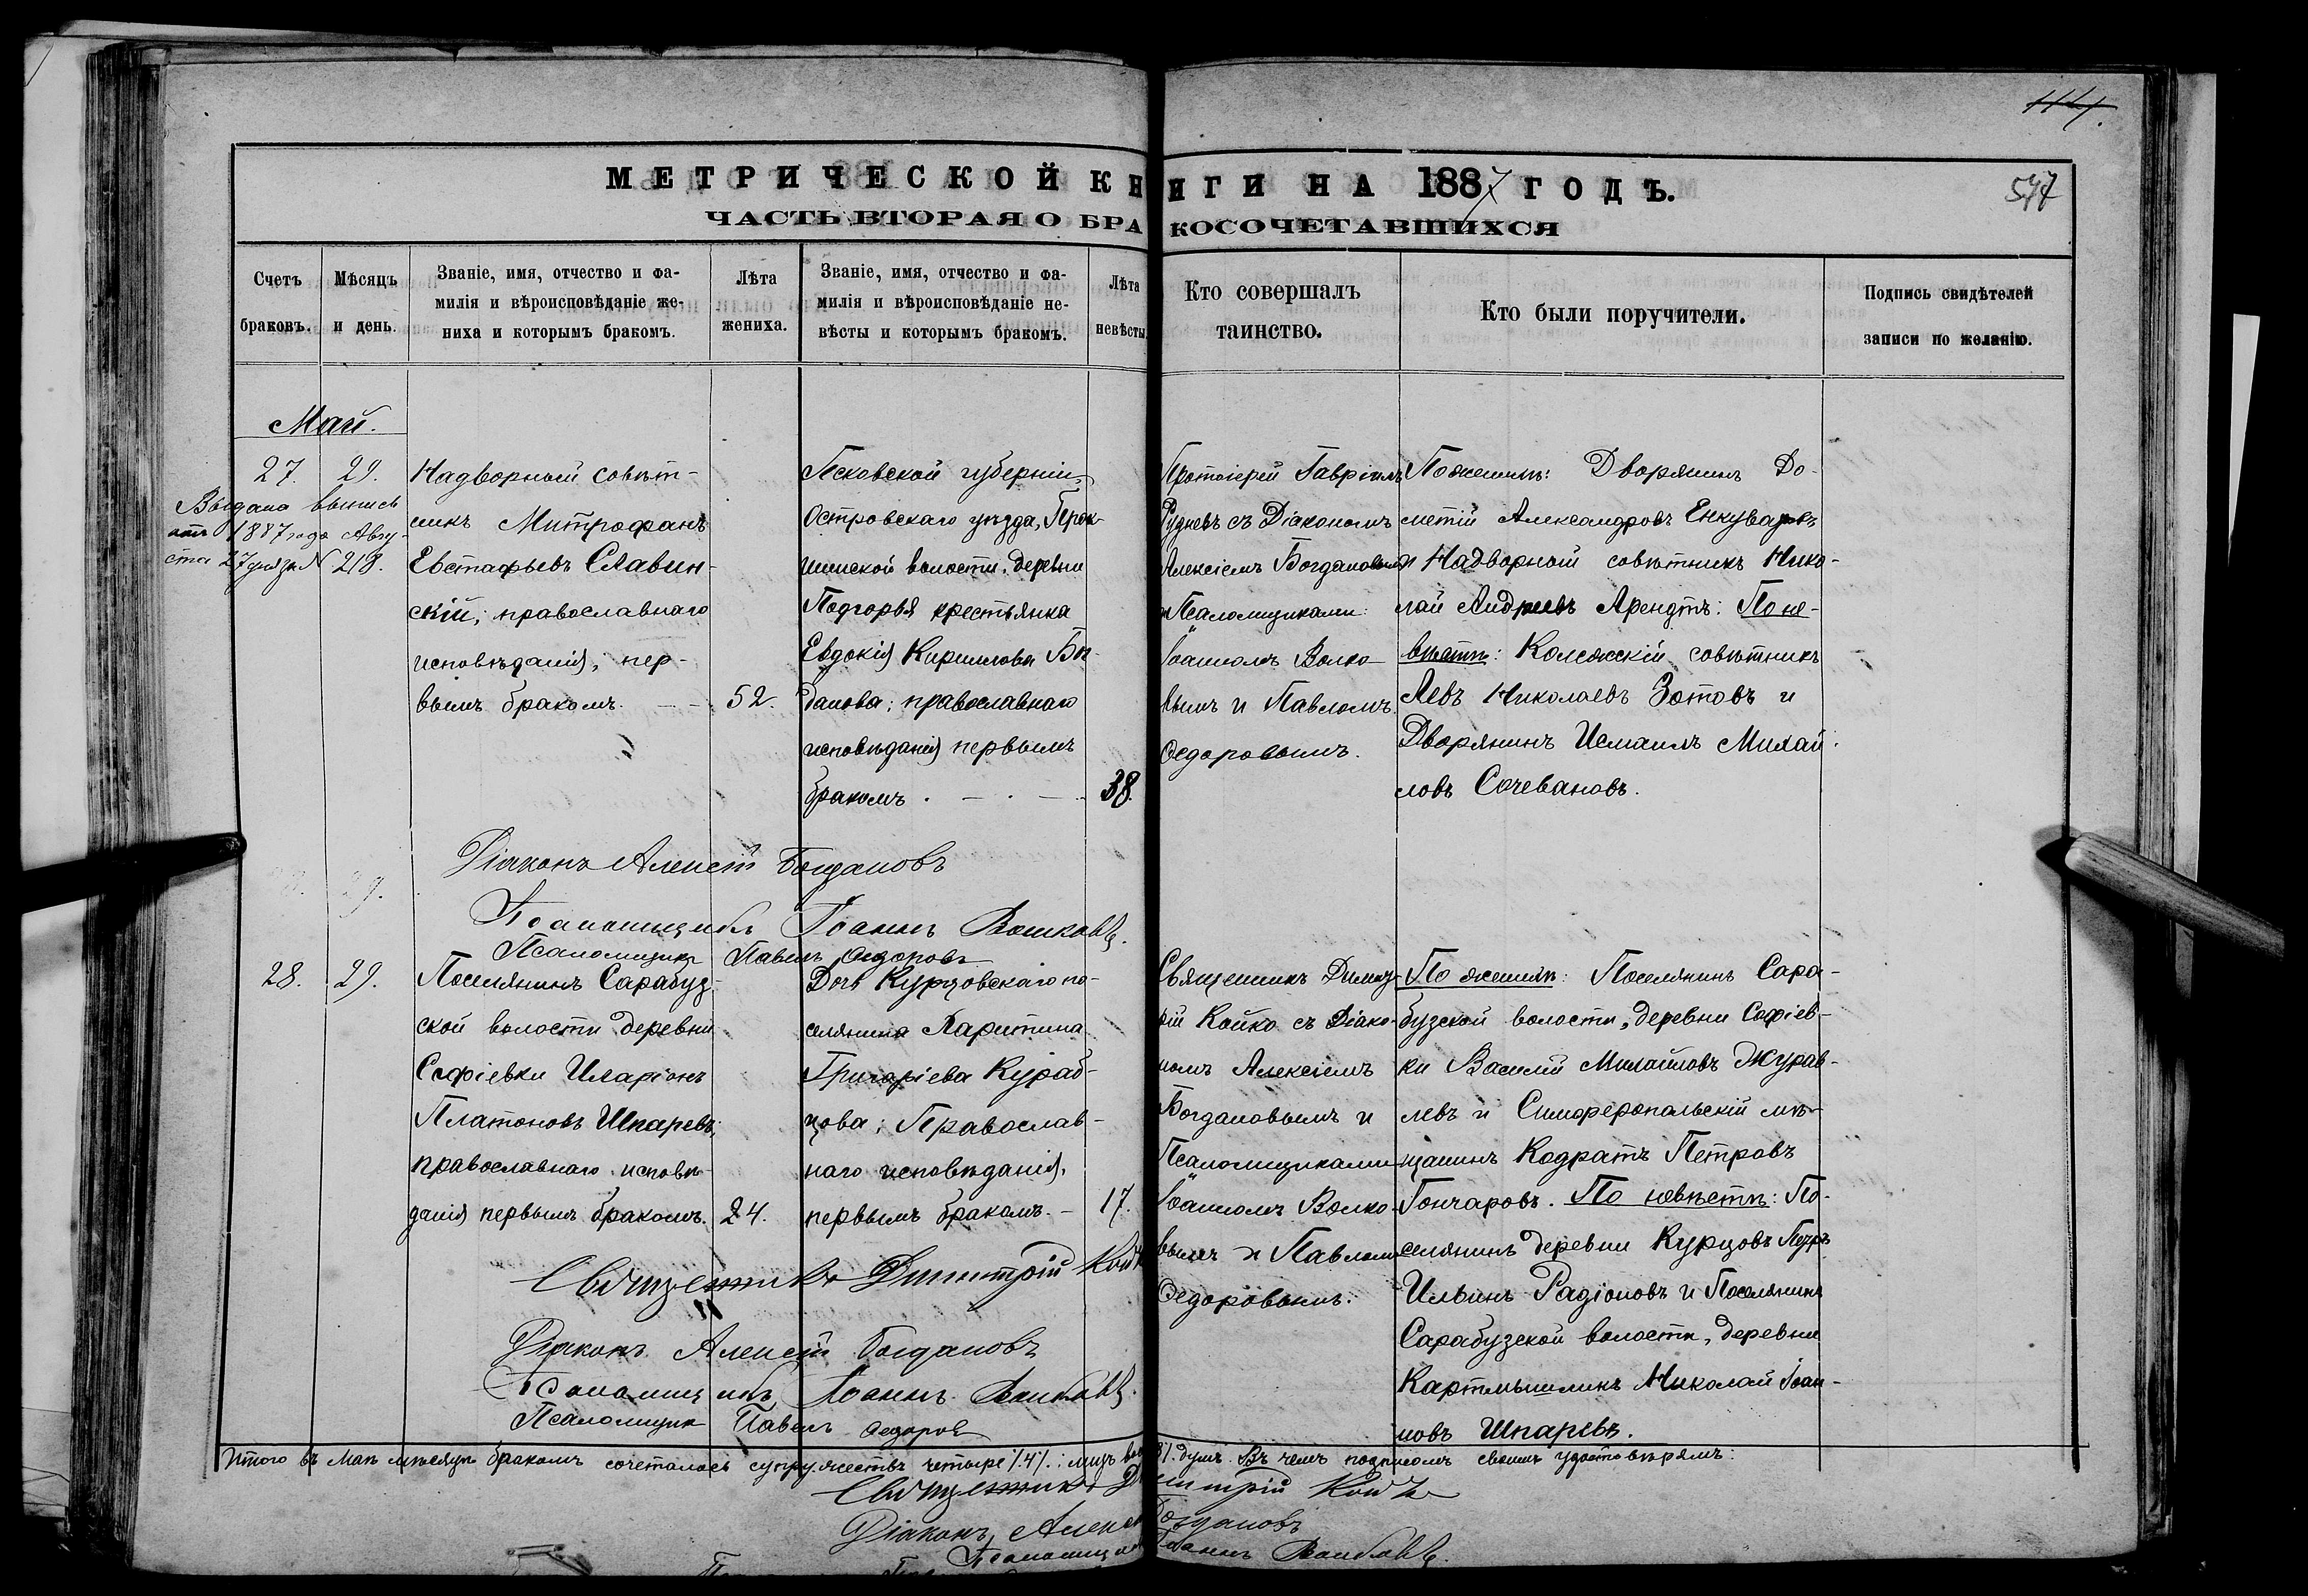 114.
МЕТРИЧЕСКОЙ КНИГИ НА 1887 ГОДЪ.
547
ЧАСТЬ ВТОРАЯ О БРАКОСОЧЕТАВШИХСЯ
Счетъ браковъ.
Мѣсяцъ и день.
Званіе, имя, отчество и фа-
милія и вѣроисповѣданіе же-
ниха и которымъ бракомъ.
Лѣта
жениха.
Званіе, имя, отчество и фа-
милія и вѣроисповѣданіе не-
вѣсты и которымъ бракомъ.
Лѣта
невѣсты
Кто совершалъ
таинство.
Кто были поручители.
Подпись свидѣтелей
записи по желанію.
Май.
27.
29.
Выдана выпись
1887 года Авгу-
ста 27 дня за № 218.
Надворный совѣт-
никъ Митрофанъ
Евстафьевъ Славин-
скій; православнаго
исповѣданія, пер-
вымъ бракомъ.
52.
Псковской губерніи,
Островскаго уѣзда,
волости, деревни
Подгорья крестьянка
Евдокія Кириллова Бог-
данова; православнаго
исповѣданія первымъ
бракомъ
38.
Протоіерей Гавріилъ
Рудневъ съ Діакономъ
Алексіемъ Богдановымъ
и Псаломщиками:
Іоанномъ Волко-
вымъ и Павломъ
Ѳедоровымъ.
По женихѣ: Дворянинъ До-
метій Александровъ Енкуваровъ
и Надворный совѣтникъ Нико-
лай Андреевъ Арендтъ: По не-
вѣстѣ: Колежскій совѣтникъ
Левъ Николаевъ Зотовъ и
Дворянинъ Исмаилъ Михай-
ловъ Сочевановъ.
Діаконъ Алексій Богдановъ
Псаломщикъ Іоаннъ Волковъ.
Псаломщикъ Павелъ Ѳедоровъ
28.
29.
Поселянинъ Сарабуз-
ской волости деревни
Софіевки Иларіонъ
Платоновъ Шпаревъ;
православнаго исповѣ-
данія первымъ бракомъ.
24.
Дочь Курцовскаго по-
селянина Харитина
Григоріева Кураб-
цова; Православ-
наго исповѣданія,
первымъ бракомъ.
17.
Священникъ Димит-
рій Койко съ Діако-
номъ Алексіемъ
Богдановымъ и
Псаломщиками
Іоанномъ Волко-
вымъ и Павломъ
Ѳедоровымъ.
По женихѣ: Поселянинъ Сара-
бузской волости, деревни Софіев-
ки Василій Михайловъ Журав-
левъ и Симферопольскій мѣ-
щанинъ Кодратъ Петровъ
Гончаровъ. По невѣстѣ: По-
селянинъ деревни Курцовъ Петръ
Ильинъ Радіоновъ и Поселянинъ
Сарабузской волости, деревни
Картмышликъ Николай Іоан-
новъ Шпаревъ.
Священникъ Димитрій Койко
Діаконъ Алексій Богдановъ
Псаломщикъ Іоаннъ Волковъ.
Псаломщикъ Павелъ Ѳедоровъ
Итого въ Маѣ мѣсяцѣ бракомъ сочеталось супружествъ четыре /4/: лицъ /8/ душъ. Въ чемъ подписомъ своимъ удостовѣряемъ:
Священникъ Димитрій Койко
Діаконъ Алексій Богдановъ
Псаломщикъ Іоаннъ Волковъ.